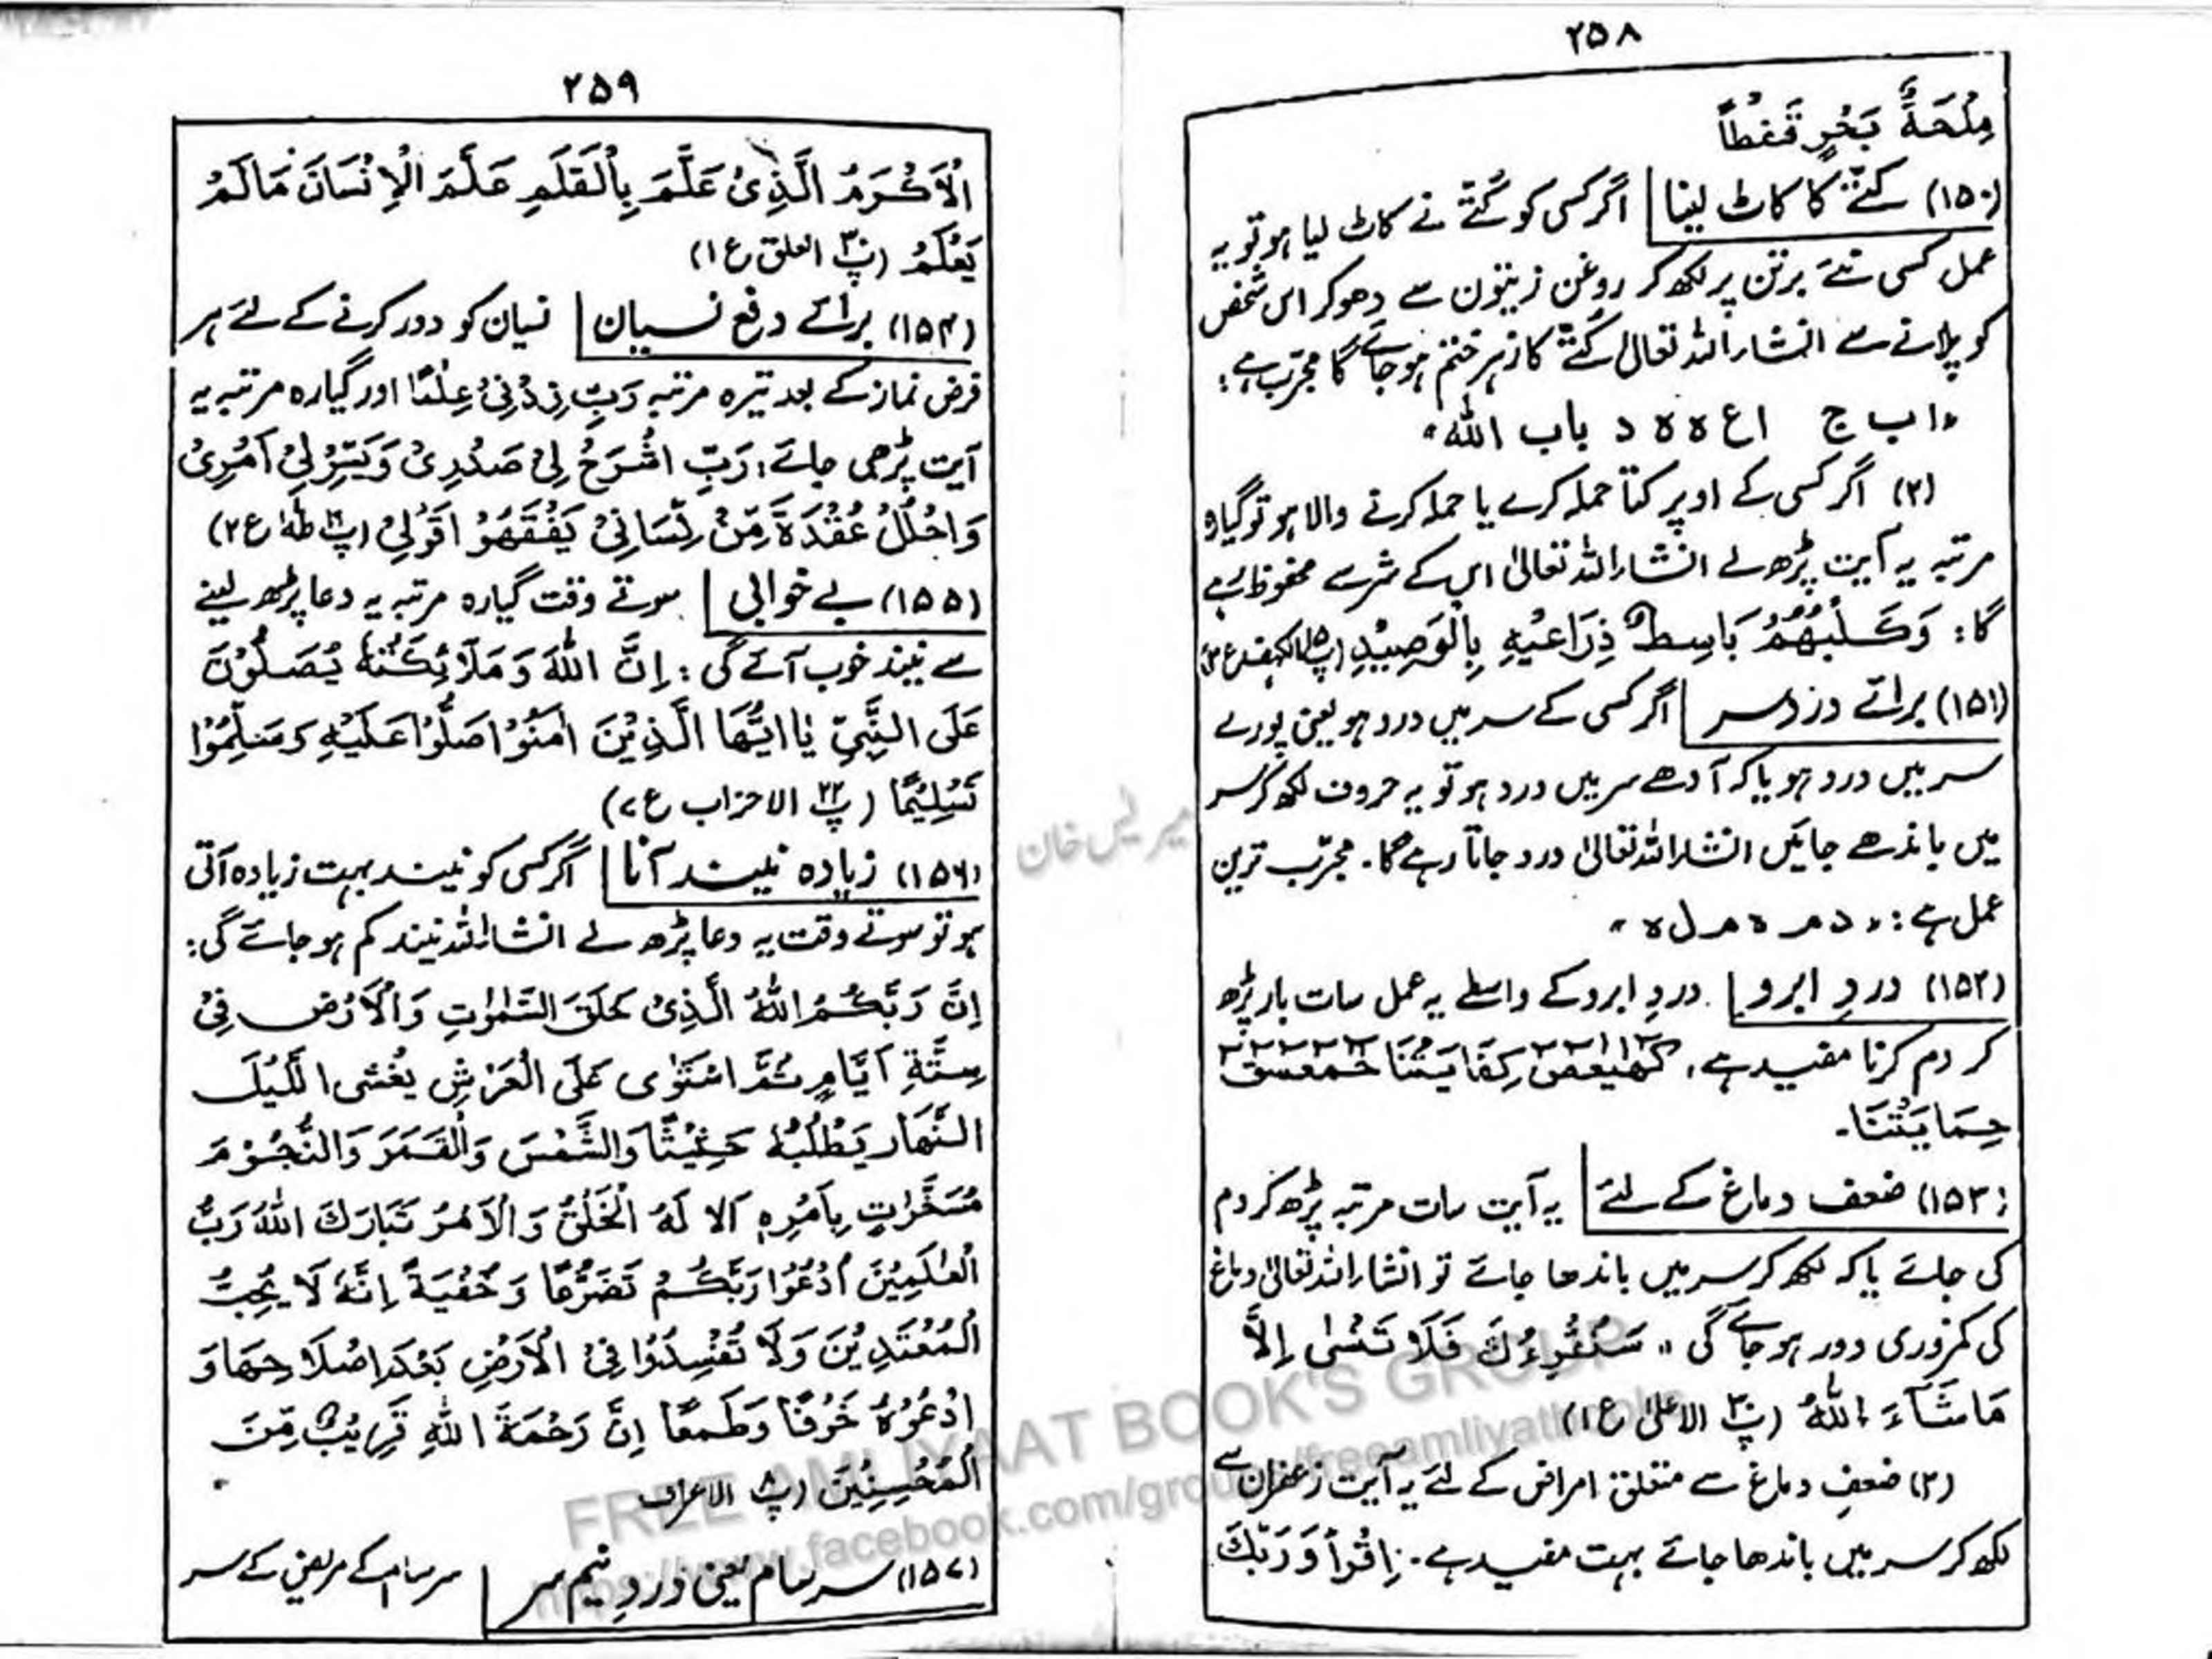 ۲۵۸
مِلْحَةً بَحْرٍ قَفْطًا
(۱۵۰) کتّے کا کاٹ لینا اگر کسی کو کُتّے نے کاٹ لیا ہو تو یہ
عمل کسی نئے برتن پر لکھ کر روغن زیتون سے دھو کر اس شخص
کو پلانے سے انشاراللہ تعالیٰ کُتّے کا زہر ختم ہو جائے گا مجرّب ہے:
"ا ب ج ا ع ہ ہ د باب اللّٰہ"
(۲) اگر کسی کے اوپر کتّا حملہ کرے یا حملہ کرنے والا ہو تو گیارہ
مرتبہ یہ آیت پڑھ لے انشاراللہ تعالیٰ اس کے شر سے محفوظ رہے
گا: وَكَلْبُهُمْ بَاسِطٌ ذِرَاعَيْهِ بِالْوَصِيْدِ (پ۱۵ الکہف ع
(۱۵۱) برائے دردِ سر اگر کسی کے سر میں درد ہو یعنی پورے
سر میں درد ہو یا کہ آدھے سر میں درد ہو تو یہ حروف لکھ کر سر
میں باندھے جائیں انشاراللہ تعالیٰ درد جاتا رہے گا۔ مجرّب ترین
عمل ہے: "د م ہ م ل ہ"
(۱۵۲) دردِ ابرو دردِ ابرو کے واسطے یہ عمل سات بار پڑھ
کر دم کرنا مفید ہے، كٓهٰيٰعٓصٓ كِفَايَتُنَا حٰمٓعٓسٓقٓ
حِمَايَتُنَا۔
(۱۵۳) ضعف دماغ کے لئے یہ آیت سات مرتبہ پڑھ کر دم
کی جائے یا کہ لکھ کر سر میں باندھا جائے تو انشاراللہ تعالیٰ دماغ
کی کمزوری دور ہو جائے گی " سَنُقْرِءُكَ فَلَا تَنْسٰى اِلَّا
مَا شَآءَ اللّٰهُ (پ۳۰ الاعلیٰ ع۱)
(۲) ضعفِ دماغ سے متعلق امراض کے لئے یہ آیت زعفران سے
لکھ کر سر میں باندھا جائے بہت مفید ہے۔ اِقْرَأْ وَرَبُّكَ
۲۵۹
الْاَكْرَمُ الَّذِىْ عَلَّمَ بِالْقَلَمِ عَلَّمَ الْاِنْسَانَ مَالَمْ
يَعْلَمْ (پ۳۰ العلق ع۱)
(۱۵۴) برائے دفع نسیان نسیان کو دور کرنے کے لئے ہر
فرض نماز کے بعد تیرہ مرتبہ رَبِّ زِدْنِىْ عِلْمًا اور گیارہ مرتبہ یہ
آیت پڑھی جائے: رَبِّ اشْرَحْ لِىْ صَدْرِىْ وَيَسِّرْ لِىْ اَمْرِىْ
وَاحْلُلْ عُقْدَةً مِّنْ لِّسَانِىْ يَفْقَهُوْ اقَوْلِىْ (پ۱۶ طٰہٰ ع۲)
(۱۵۵) بے خوابی سوتے وقت گیارہ مرتبہ یہ دعا پڑھ لینے
سے نیند خوب آئے گی: اِنَّ اللّٰهَ وَمَلَآئِكَتَهٗ يُصَلُّوْنَ
عَلَى النَّبِيِّ يٰااَيُّهَا الَّذِيْنَ اٰمَنُوْا صَلُّوْا عَلَيْهِ وَسَلِّمُوْا
تَسْلِيْمًا (پ۲۲ الاحزاب ع۷)
(۱۵۶) زیادہ نیند آنا اگر کسی کو نیند بہت زیادہ آتی
ہو تو سوتے وقت یہ دعا پڑھ لے انشاراللہ نیند کم ہو جائے گی:
اِنَّ رَبَّكُمُ اللّٰهُ الَّذِىْ خَلَقَ السَّمٰوٰتِ وَالْاَرْضَ فِىْ
سِتَّةِ اَيَّامٍ ثُمَّ اسْتَوٰى عَلَى الْعَرْشِ يُغْشِى اللَّيْلَ
النَّهَارَ يَطْلُبُهٗ حَثِيْثًا وَّالشَّمْسَ وَالْقَمَرَ وَالنُّجُوْمَ
مُسَخَّرٰتٍ بِاَمْرِهٖ اَلَا لَهُ الْخَلْقُ وَالْاَمْرُ تَبَارَكَ اللّٰهُ رَبُّ
الْعٰلَمِيْنَ اُدْعُوْا رَبَّكُمْ تَضَرُّعًا وَّخُفْيَةً اِنَّهٗ لَا يُحِبُّ
الْمُعْتَدِيْنَ وَلَا تُفْسِدُوْا فِى الْاَرْضِ بَعْدَ اِصْلَاحِهَا وَ
ادْعُوْهُ خَوْفًا وَّطَمَعًا اِنَّ رَحْمَةَ اللّٰهِ قَرِيْبٌ مِّنَ
الْمُحْسِنِيْنَ (پ۸ الاعراف
(۱۵۷) سرسام یعنی دردِ نیم سر سرسام کے مریض کے سر
FREE AMLIYAAT BOOK'S GROUP
https://www.facebook.com/groups/freeamliyatbooks